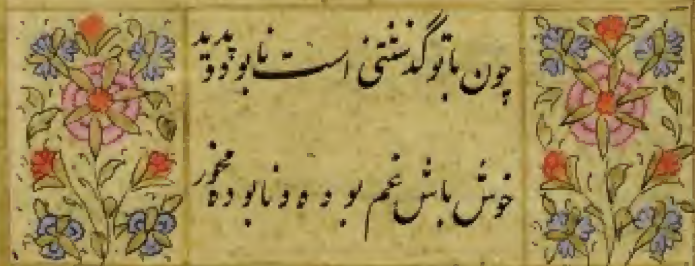 چون با تو گذشتنی است نابوده پدید
خوش باش غم بوده و نابوده مخور